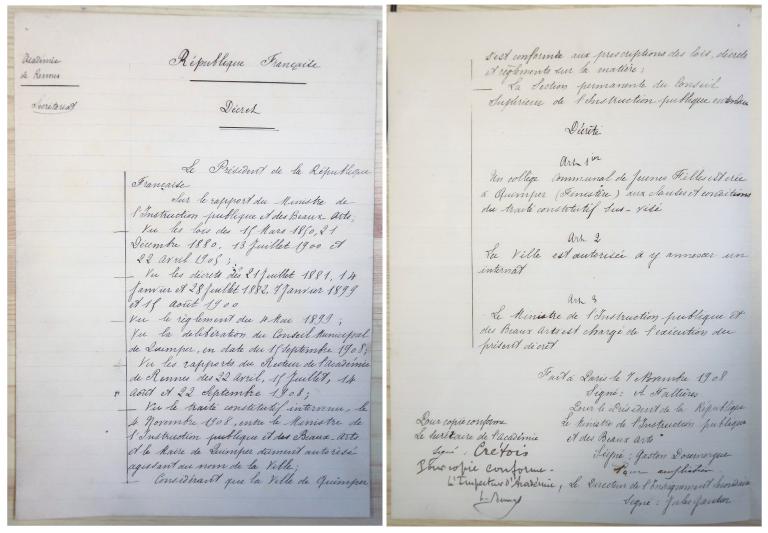 Académie
de Rennes
Secrétariat
République Française
Décret
Le Président de la République
Française
Sur le rapport du Ministre de
l'Instruction publique et des Beaux-Arts,
Vu les lois des 15 Mars 1850, 21
Décembre 1880, 13 Juillet 1900 et
22 avril 1905;
Vu les décrets des 21 Juillet 1881, 14
Janvier et 28 Juillet 1882, 7 Janvier 1899
et 15 août 1900
Vu le règlement du 4 Mai 1899;
Vu la délibération du Conseil Municipal
de Quimper, en date du 15 Septembre 1908;
Vu les rapports du Recteur de l'Académie
de Rennes des 22 Avril, 15 Juillet, 14
Août et 22 Septembre 1908;
Vu le traité constitutif intervenu, le
4 Novembre 1908, entre le Ministre de
l'Instruction publique et des Beaux-Arts
et le Maire de Quimper dument autorisé
agissant au nom de la Ville;
Considérant que la Ville de Quimper
s'est conformée aux prescriptions des lois, décrets
et règlements sur la matière;
La Section permanente du Conseil
Supérieur de l'Instruction publique entendue
Décrète
Art. 1er
Un collège Communal de Jeunes Filles est créé
à Quimper (Finistère) aux clauses et conditions
du traité constitutif sus-visé
Art. 2
La Ville est autorisée à y annexer un
internat
Art. 3
Le Ministre de l'Instruction publique et
des Beaux Arts est chargé de l'exécution du
présent décret
Fait à Paris le 7 Novembre 1908
Signé: A Fallières
Pour le Président de la République
Le Ministre de l'Instruction publique
et des Beaux Arts
Signé: Gaston Doumergue
Pour ampliation
Le Directeur de l'Enseignement Secondaire
Signé: Jules Gautier
Pour copie conforme
Le Secrétaire de l'académie
Signé: Crétois
Pour copie conforme.
L'Inspecteur d'Académie,